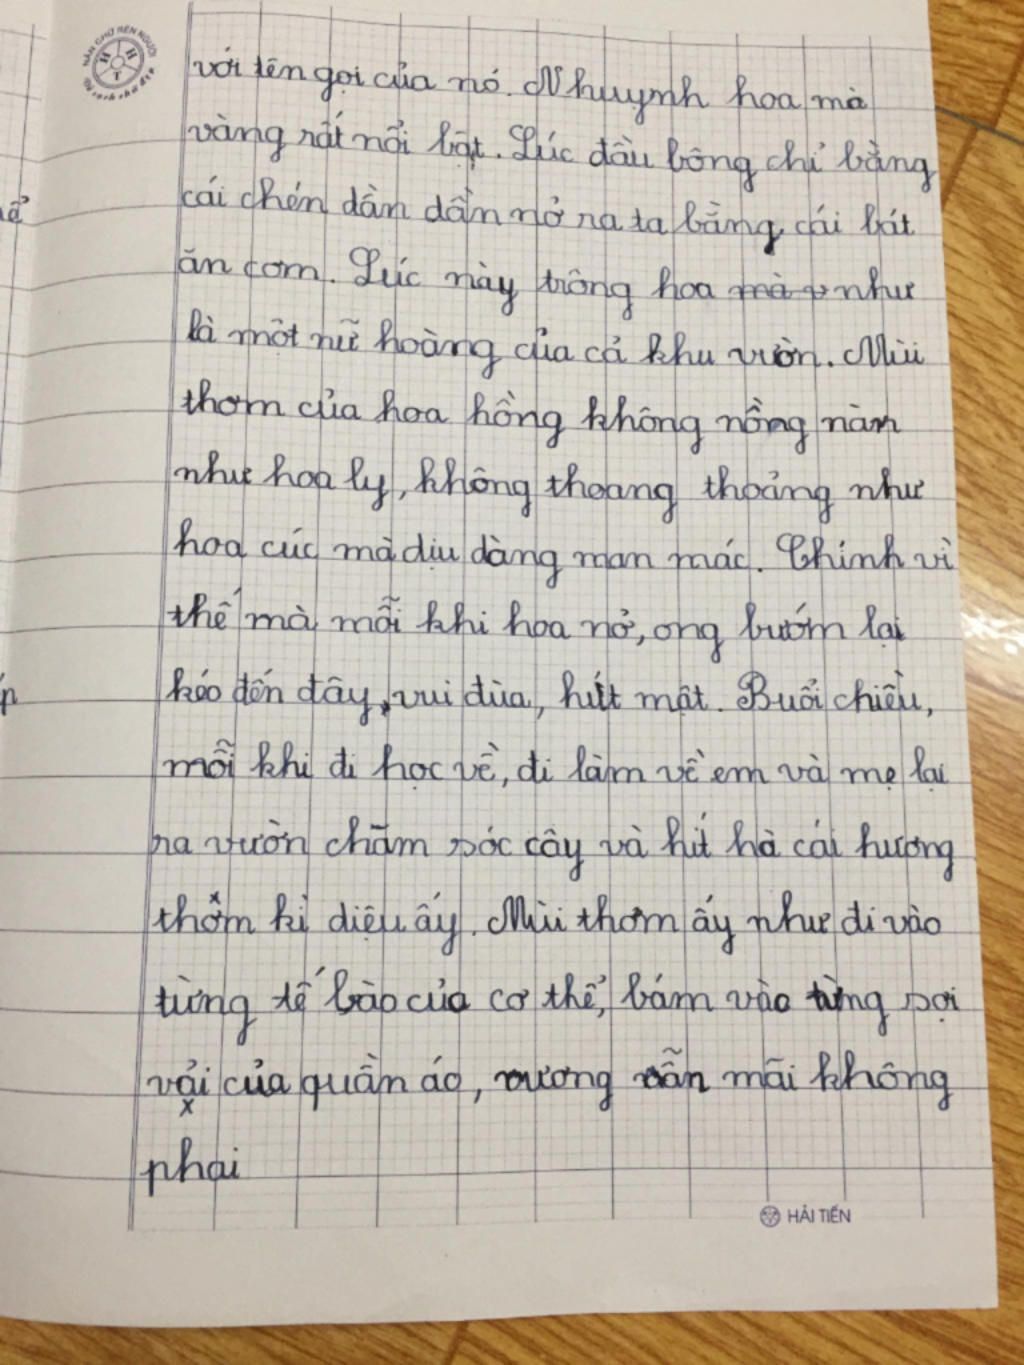 NẮN CHỮ RÈN NGƯỜI
H H T
với tên gọi của nó. Nhuỵnh hoa mà
vàng rất nổi bật. Lúc đầu bông chỉ bằng
cái chén dần dần nở ra ta bằng cái bát
ăn cơm. Lúc này trông hoa như
là một nữ hoàng của cả khu vườn. Mùi
thơm của hoa hồng không nồng nàn
như hoa ly, không thoang thoảng như
hoa cúc mà dịu dàng man mác. Chính vì
thế mà mỗi khi hoa nở, ong bướm lại
kéo đến đây, vui đùa, hút mật. Buổi chiều,
mỗi khi đi học về, đi làm về em và mẹ lại
ra vườn chăm sóc cây và hít hà cái hương
thơm kì diệu ấy. Mùi thơm ấy như đi vào
từng tế bào của cơ thể, bám vào từng sợi
vải của quần áo, vương vẫn mãi không
phai
HẢI TIẾN